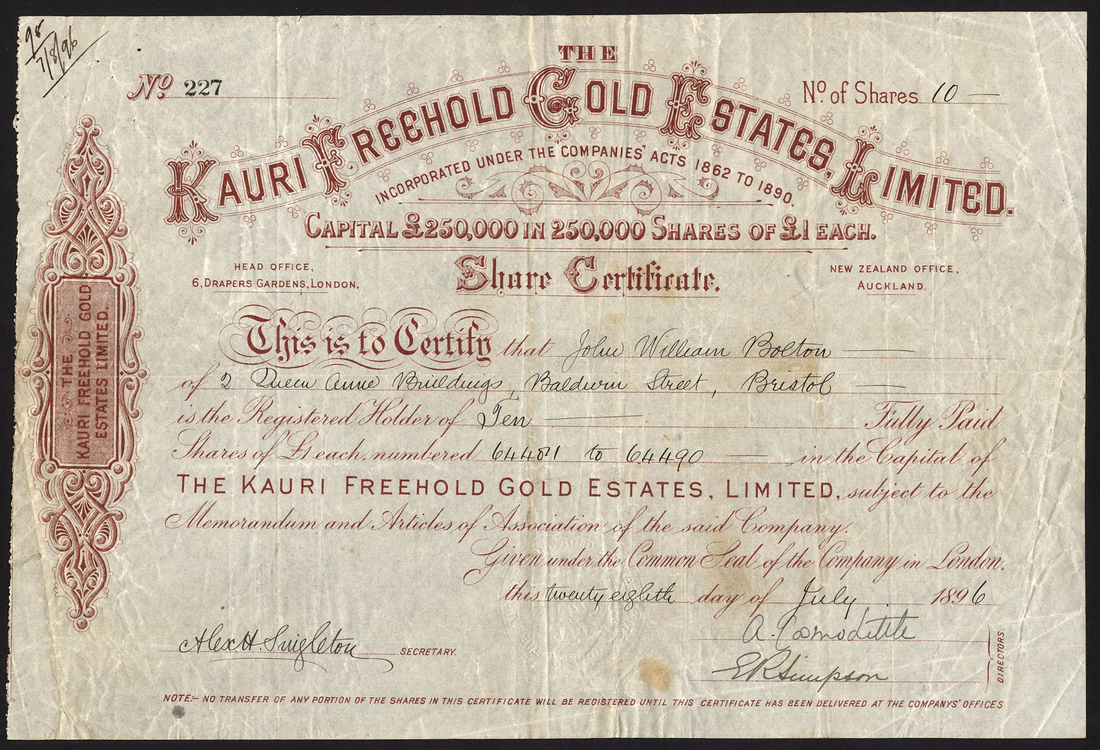 98
7/8/96
THE
No. 227
No. of Shares 10 —
KAURI FREEHOLD GOLD ESTATES, LIMITED.
INCORPORATED UNDER THE COMPANIES' ACTS 1862 TO 1890.
CAPITAL £250,000 IN 250,000 SHARES OF £1 EACH.
HEAD OFFICE,
6, DRAPERS GARDENS, LONDON.
Share Certificate.
NEW ZEALAND OFFICE,
AUCKLAND.
THE
KAURI FREEHOLD GOLD
ESTATES LIMITED.
This is to Certify that John William Bolton —
of 2 Queen Anne Buildings, Baldwin Street, Bristol —
is the Registered Holder of Ten — Fully Paid
Shares of £1 each, numbered 64481 to 64490 — in the Capital of
THE KAURI FREEHOLD GOLD ESTATES, LIMITED, subject to the
Memorandum and Articles of Association of the said Company.
Given under the Common Seal of the Company in London,
this twenty eighth day of July 1896
A.
Alex H. Singleton SECRETARY.
E R Simpson
DIRECTORS.
NOTE:- NO TRANSFER OF ANY PORTION OF THE SHARES IN THIS CERTIFICATE WILL BE REGISTERED UNTIL THIS CERTIFICATE HAS BEEN DELIVERED AT THE COMPANYS' OFFICES